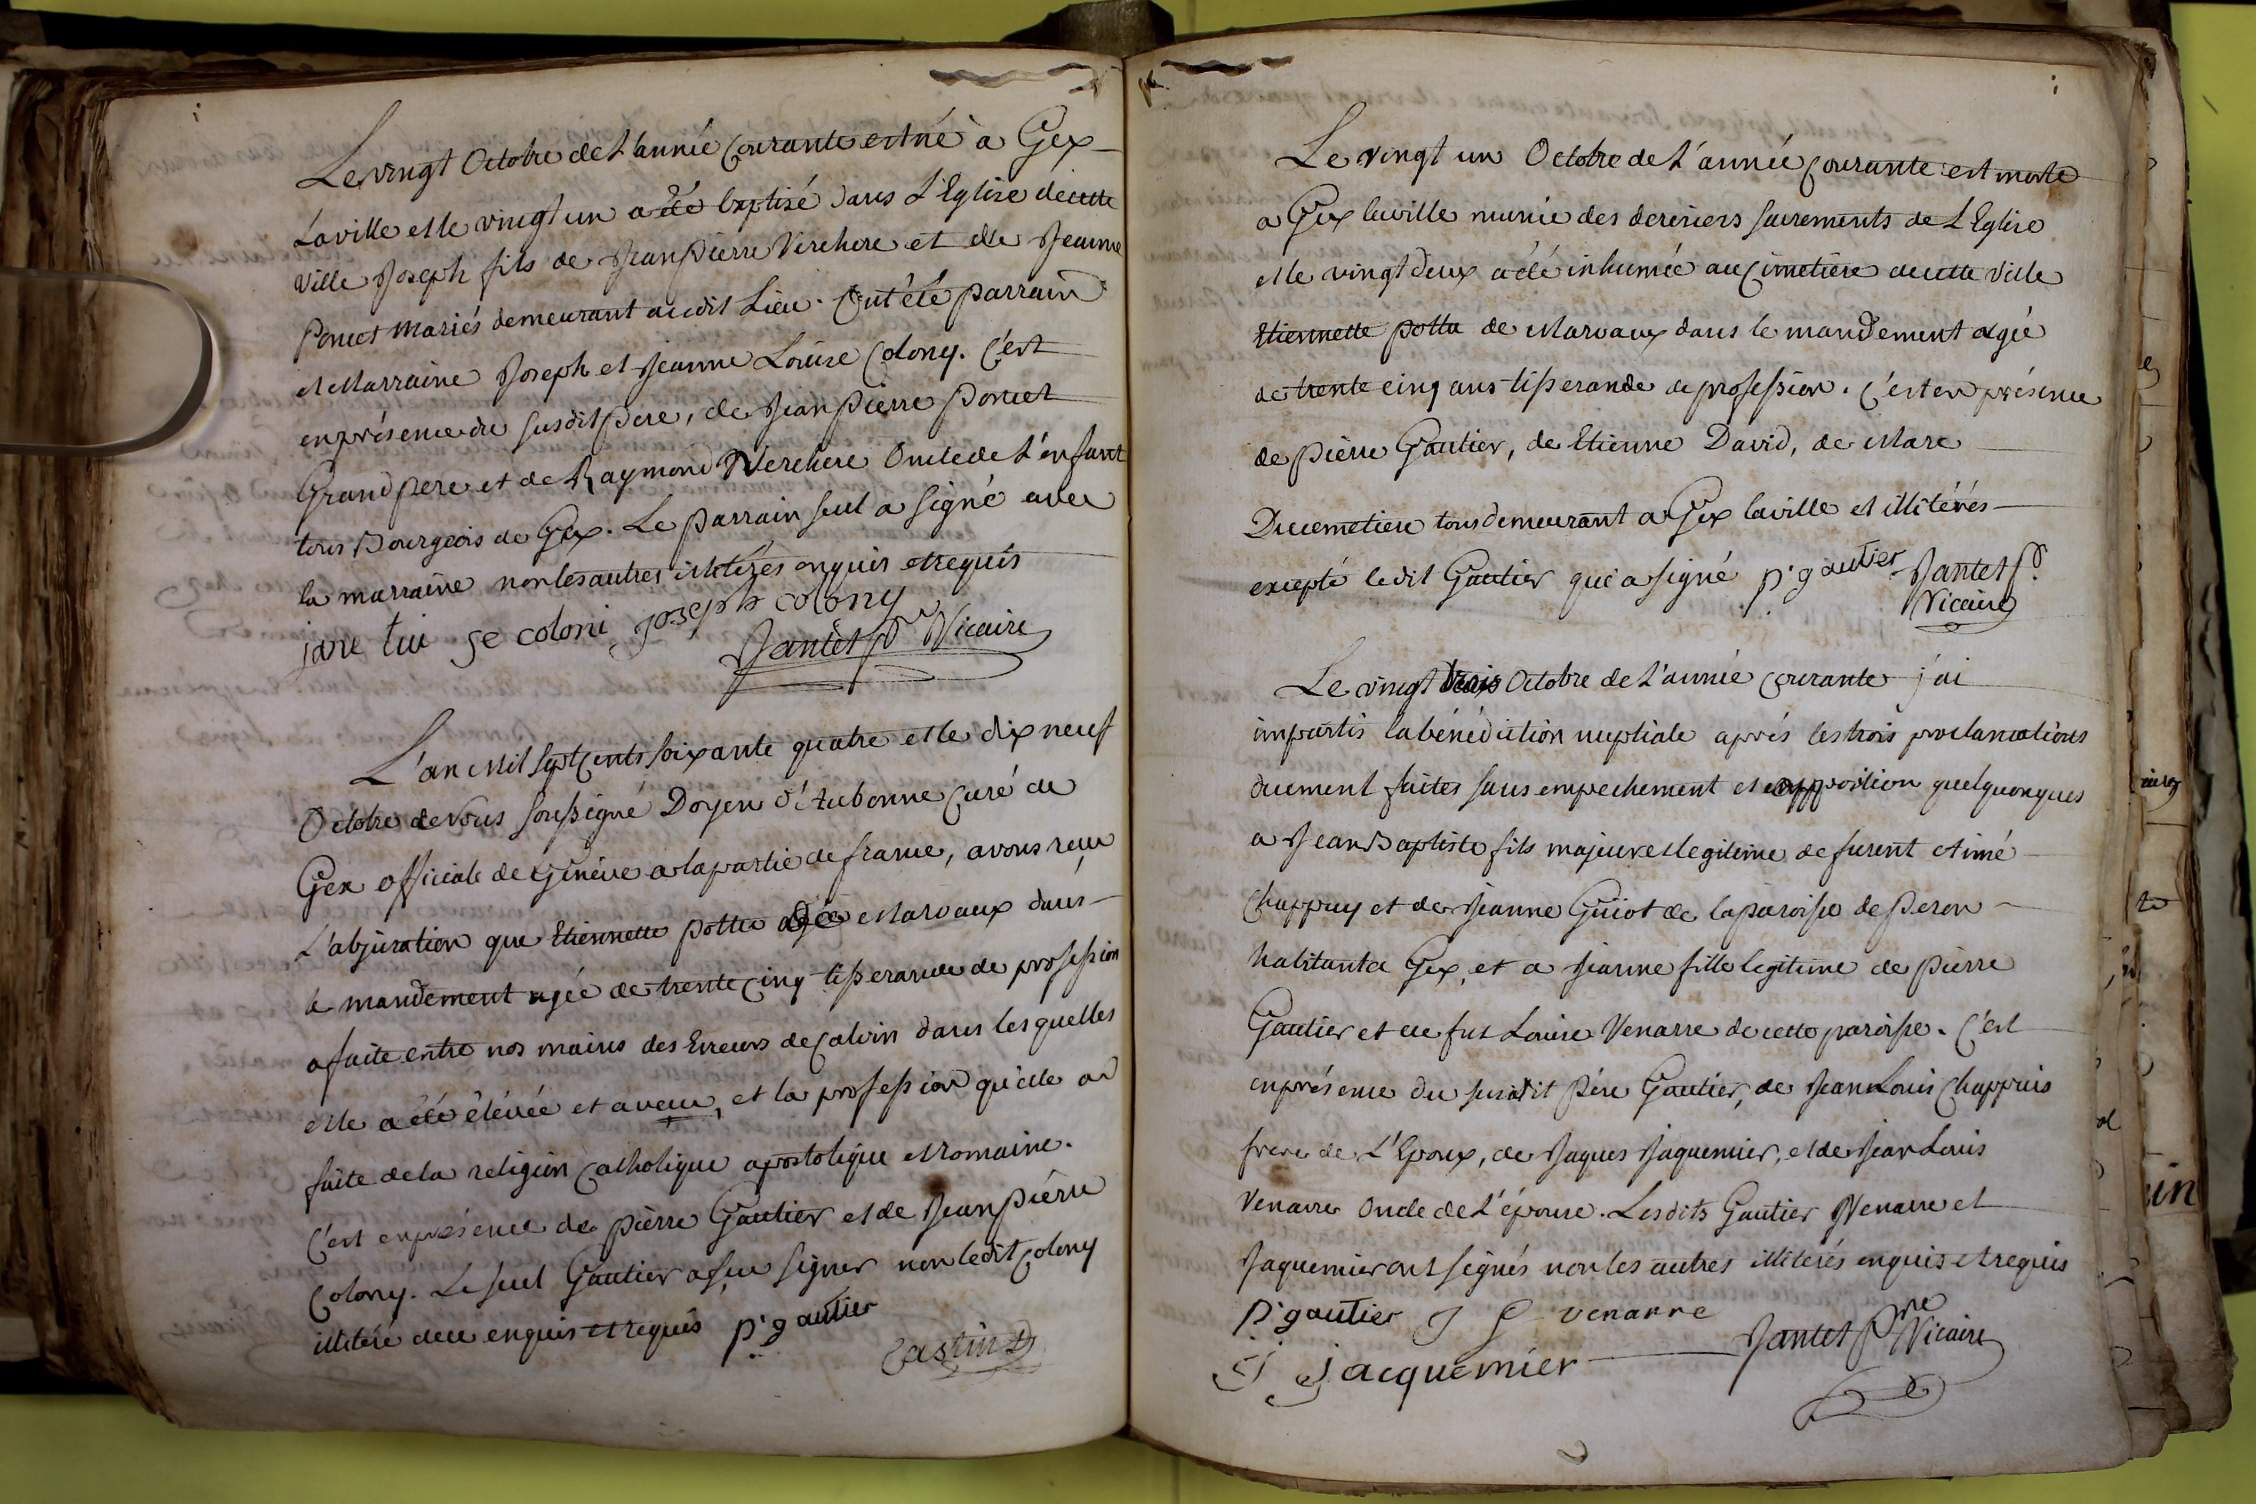 Le vingt Octobre de L'année Courante est né à Gex
Laville et le vingt un a été baptisé dans L'Eglise de cette
ville Joseph fils de Jean Pierre Verchere et de Jeanne
Poncet mariés demeurant audit Lieu. Ont été parrain
et Marraine Joseph et Jeanne Louise Colony. C'est
en présence du susdit pere, de Jean Pierre Poncet
Grand pere et de Raymond Verchere Oncle de L'enfant
tous Bourgeois de Gex. Le parrain seul a signé avec
la marraine non les autres illitérés enquis et requis
jane lui se coloni joseph colony
Jantet Vicaire
L'an Mil sept Cents soixante quatre et le dix neuf
Octobre de vous soussigné Doyen d'Aubonne Curé de
Gex officiale de Genève a la partie de france, avons reçu
L'abjuration que Etiennette pottu de Marvaux dans
le mandement agée de trente Cinq tisserande de profession
a faite entre nos mains des Erreurs de Calvin dans lesquelles
elle a été élévée et aveu, et la profession qu'elle a
faite de la religion Catholique apostolique et romaine.
C'est en présence de pierre Gautier et de Jean pierre
Colony. Le seul Gautier a su signer non ledit Colony
illitéré de ce enquis et requis p. gautier
Castin
Le vingt un Octobre de L'année Courante est morte
a Gex laville munie des derniers sacrements de L'Eglise
et le vingt deux a été inhumée au Cimetiere de cette ville
Etiennette pottu de Marvaux dans le mandement agée
de trente cinq ans tisserande de profession. C'est en présence
de pierre Gautier, de Etienne David, de Marc
Ducemetiere tous demeurant a Gex laville et illitérés
excepté ledit Gautier qui a signé p. gautier Jantet
Vicaire
Le vingt trois Octobre de L'année courante j'ai
impartis la bénédiction nuptiale aprés les trois proclamations
duement faites sans empechement et opposition quelquonques
a Jean Baptiste fils majeur et legitime de furent Aimé
Chappuy et de Jeanne Guiot de la paroisse de Peron
habitant a Gex, et a Jeanne fille legitime de pierre
Gautier et de fut Louise Venarre de cette paroisse. C'est
en présence du susdit Pére Gautier, de Jean Louis Chappuis
frere de L'Epoux, de Jaques Jaquemier, et de Jean Louis
Venarre Oncle de L'épouse. Lesdits Gautier Venarre et
Jaquemier ont signés non les autres illiterés enquis et requis
p. gautier J venarre
Jantet Ptre Vicaire
J jacquemier